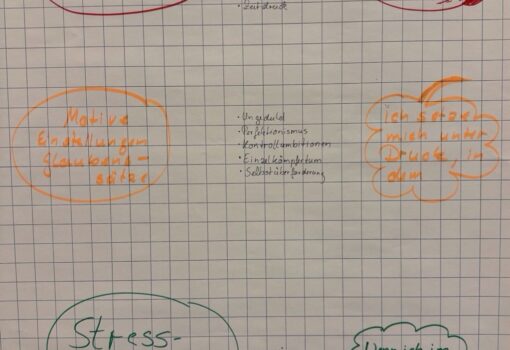 • Zeitdruck
Motive
Einstellungen
Glaubens-
sätze
• Ungeduld
• Perfektionismus
• Kontrollambitionen
• Einzelkämpfertum
• Selbstüberforderung
ich setze
mich unter
Druck, in
dem
Stress-
Wenn ich im